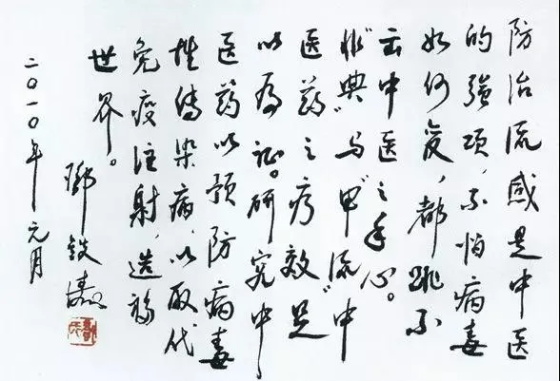 防治流感是中医
的强项,不怕病毒
如何变,都跳不
出中医之手心。
“非典”与“甲流”中
医药之疗效足
以为证。研究中
医药以预防病毒
性传染病,以取代
免疫注射,造福
世界。
邓铁涛
二〇一〇年元月